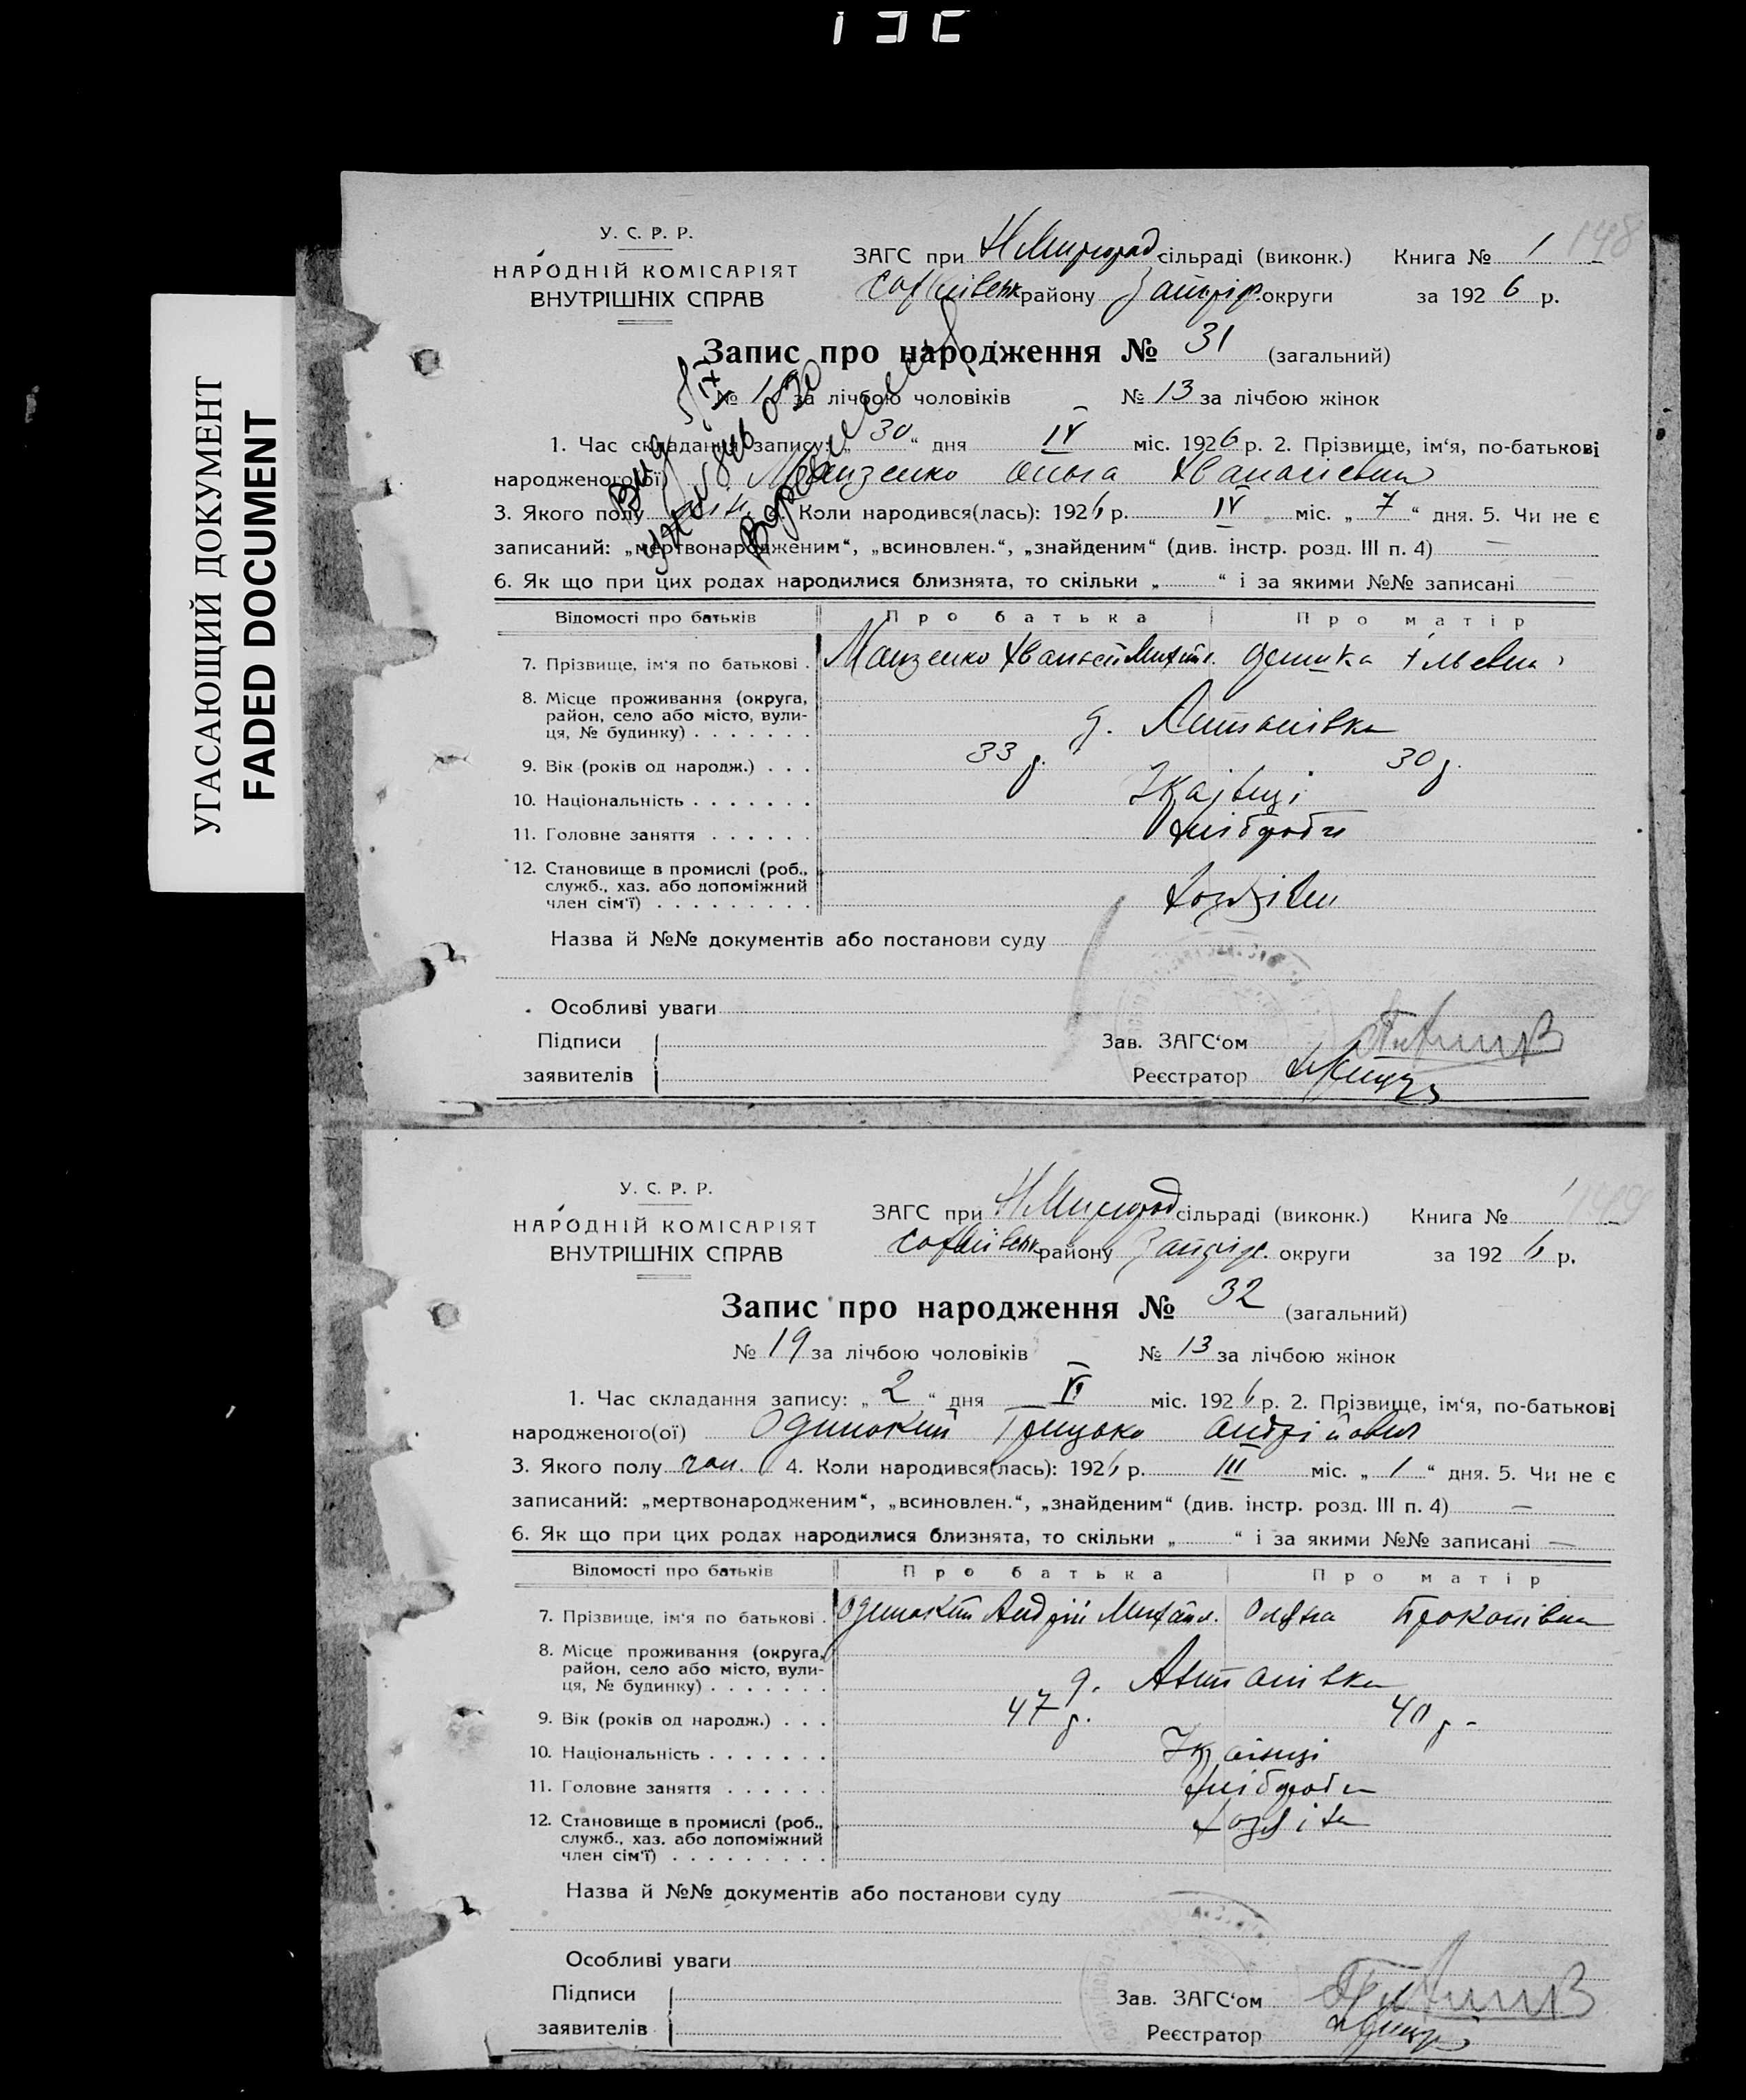 УГАСАЮЩИЙ ДОКУМЕНТ
FADED DOCUMENT
148
У. С. Р. Р.
НАРОДНІЙ КОМІСАРІЯТ
ВНУТРІШНІХ СПРАВ
ЗАГС при Н Миргород сільраді (виконк.) Книга № 1
Софіївськ району Запоріж. округи за 1926 р.
Запис про народження № 31 (загальний)
№ 18 за лічбою чоловіків № 13 за лічбою жінок
1. Час складання запису: „30“ дня IV міс. 1926 р. 2. Прізвище, ім‘я, по-батькові
народженого(ої)
3. Якого полу 4. Коли народився(лась): 1926 р. IV міс. „7“ дня. 5. Чи не є
записаний: „мертвонародженим“, „всиновлен.“, „знайденим“ (див. інстр. розд. III п. 4) —
6. Як що при цих родах народилися близнята, то скільки „ “ і за якими №№ записані
Відомості про батьків Про батька Про матір
7. Прізвище, ім‘я по батькові . Ільєвна
8. Місце проживання (округа,
район, село або місто, вули-
ця, № будинку) . . . . . . . д. Антонівка
9. Вік (років од народж.) . . . 33 р. 30 р.
10. Національність . . . . . . . Українці
11. Головне заняття . . . . . . хлібороби
12. Становище в промислі (роб.,
служб., хаз. або допоміжний
член сім‘ї) . . . . . . . . . хазяїни
Назва й №№ документів або постанови суду
Особливі уваги
Підписи
заявителів
Зав. ЗАГС‘ом
Реєстратор
149
У. С. Р. Р.
НАРОДНІЙ КОМІСАРІЯТ
ВНУТРІШНІХ СПРАВ
ЗАГС при Н Миргород сільраді (виконк.) Книга № 1
Софіївськ району Запоріж. округи за 1926 р.
Запис про народження № 32 (загальний)
№ 19 за лічбою чоловіків № 13 за лічбою жінок
1. Час складання запису: „2“ дня VI міс. 1926 р. 2. Прізвище, ім‘я, по-батькові
народженого(ої) Одинокий Грицько Андрійович
3. Якого полу чол. 4. Коли народився(лась): 1926 р. III міс. „1“ дня. 5. Чи не є
записаний: „мертвонародженим“, „всиновлен.“, „знайденим“ (див. інстр. розд. III п. 4) —
6. Як що при цих родах народилися близнята, то скільки „ “ і за якими №№ записані —
Відомості про батьків Про батька Про матір
7. Прізвище, ім‘я по батькові . Одинокий Андрій Михайл. Прокопівна
8. Місце проживання (округа,
район, село або місто, вули-
ця, № будинку) . . . . . . . д. Антонівка
9. Вік (років од народж.) . . . 47 р. 40 р.
10. Національність . . . . . . . Українці
11. Головне заняття . . . . . . хлібороби
12. Становище в промислі (роб.,
служб., хаз. або допоміжний
член сім‘ї) . . . . . . . . . хазяїни
Назва й №№ документів або постанови суду
Особливі уваги
Підписи
заявителів
Зав. ЗАГС‘ом
Реєстратор